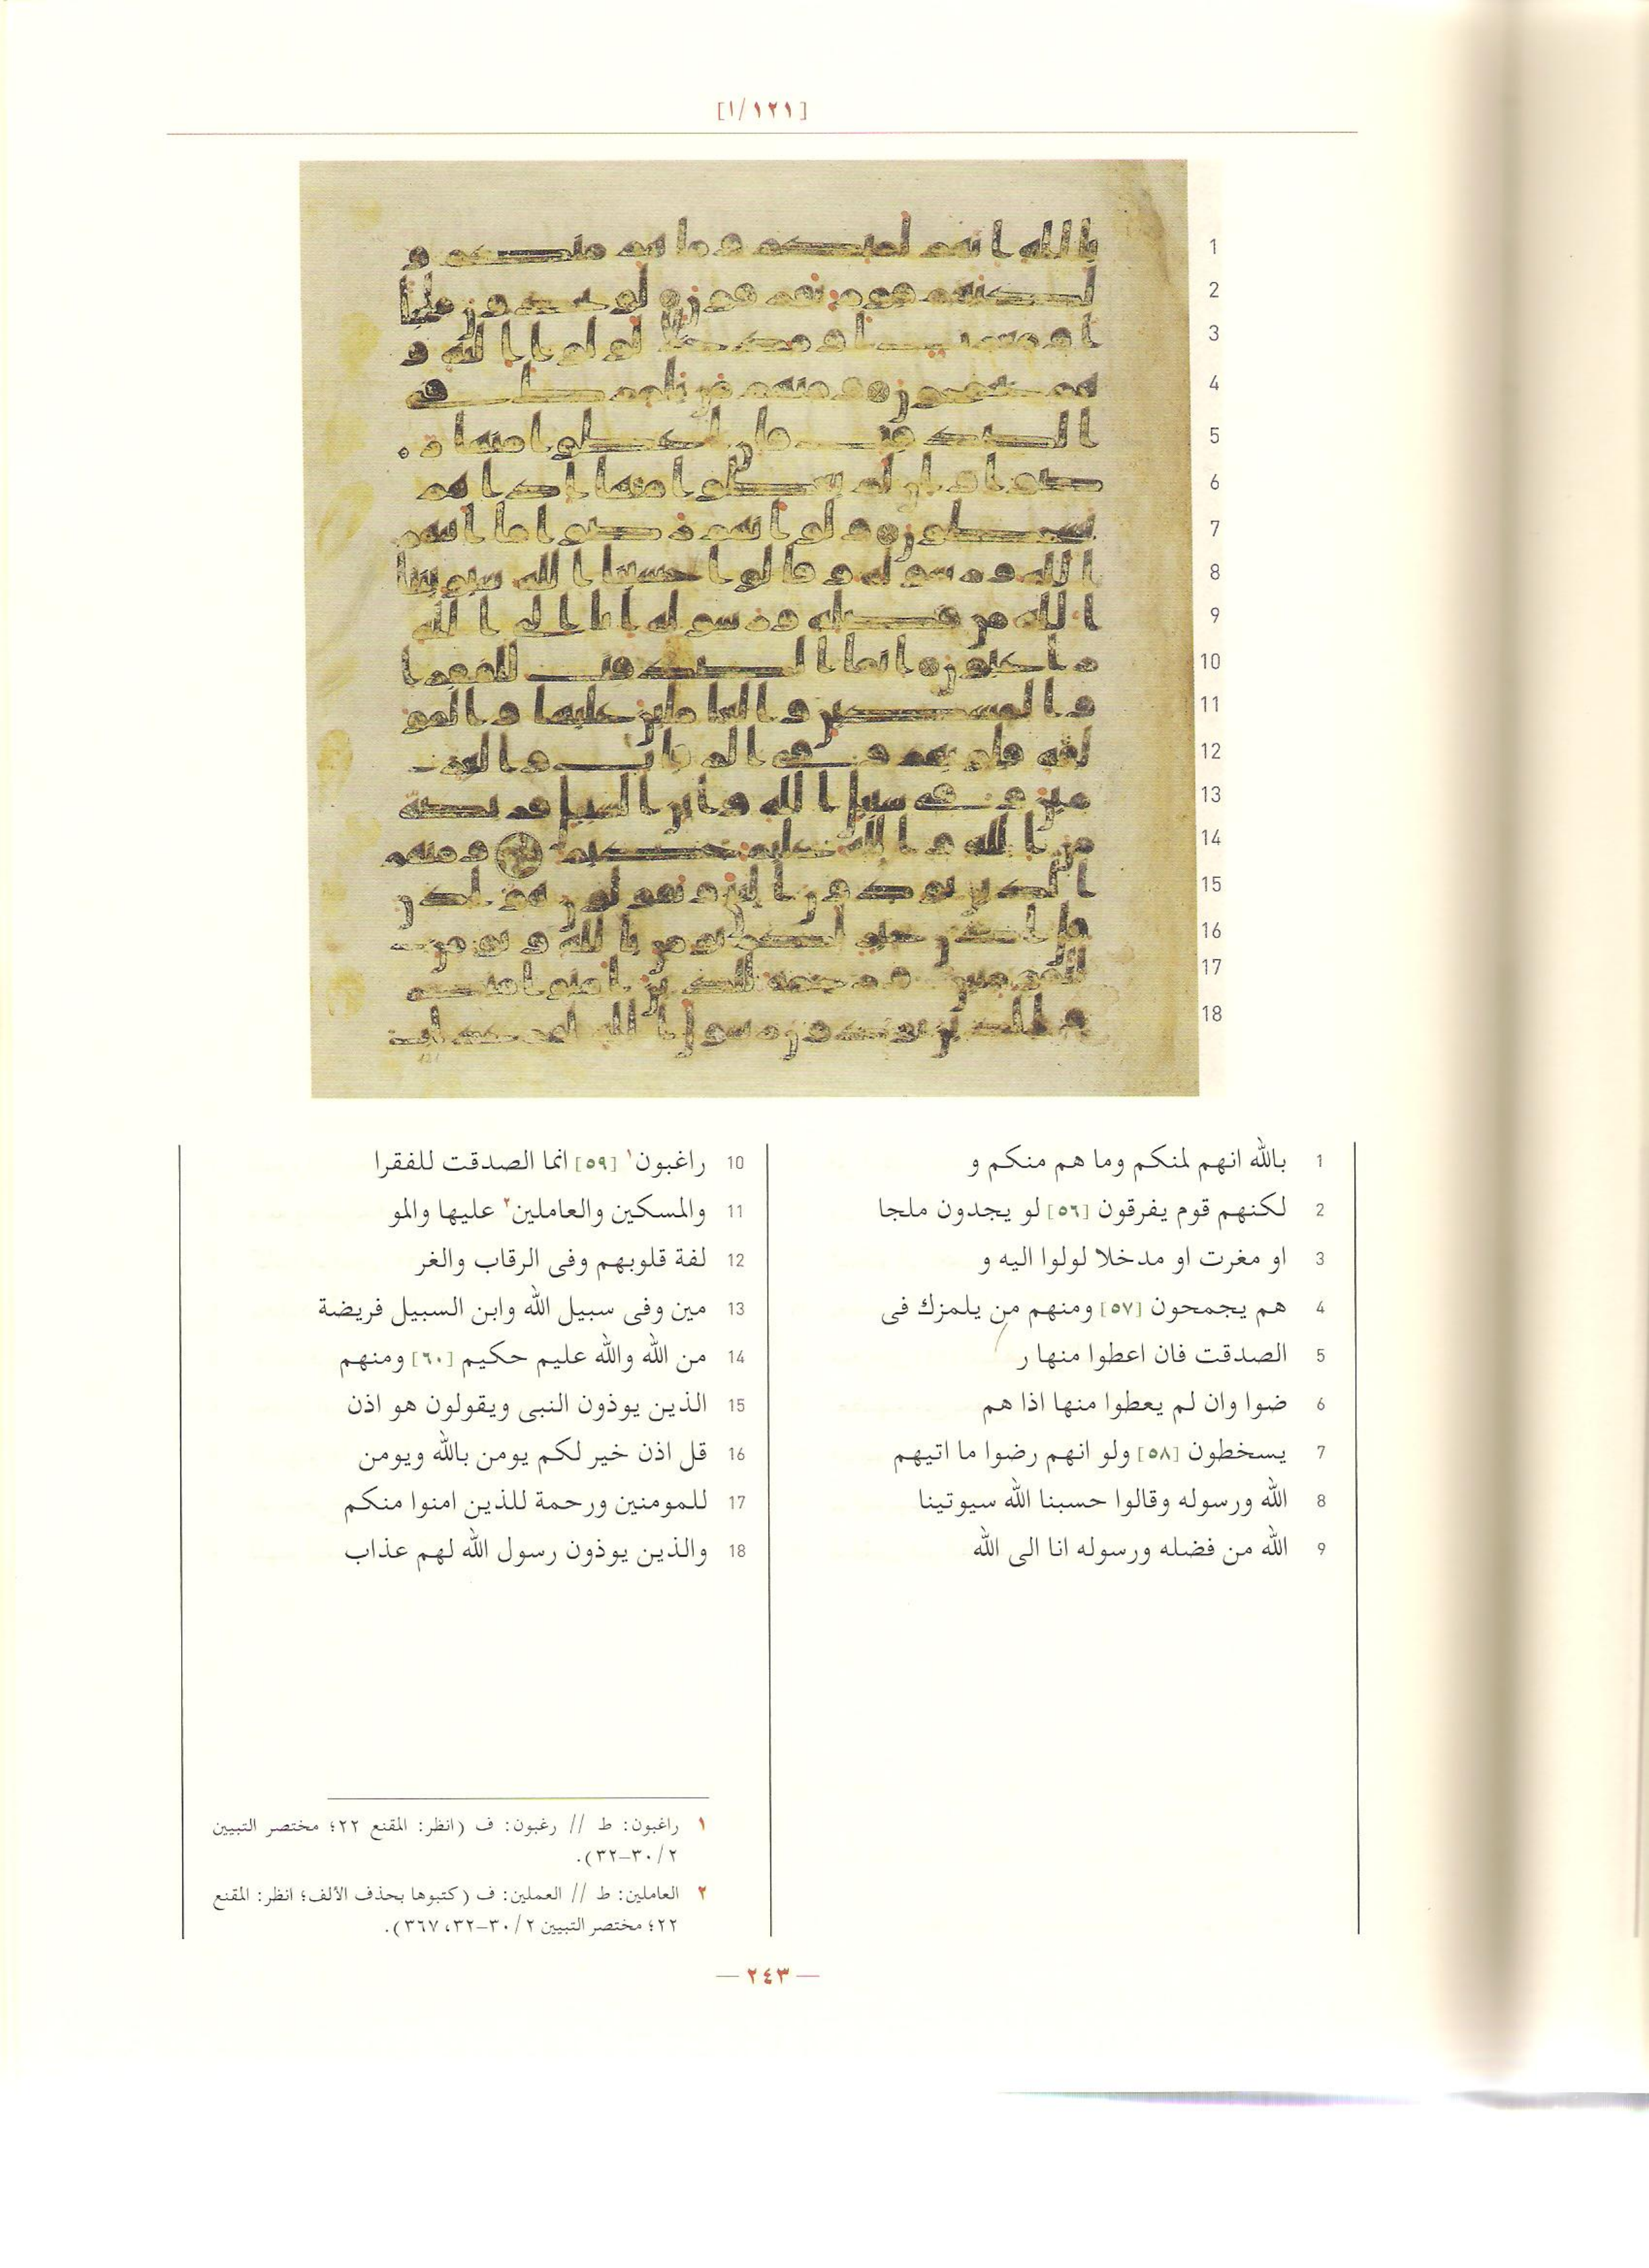 [١/١٢١]
1 بالله انهم لمنكم وما هم منكم و
2 لكنهم قوم يفرقون [٥٦] لو يجدون ملجا
3 او مغرت او مدخلا لولوا اليه و
4 هم يجمحون [٥٧] ومنهم من يلمزك فى
5 الصدقت فان اعطوا منها ر
6 ضوا وان لم يعطوا منها اذا هم
7 يسخطون [٥٨] ولو انهم رضوا ما اتيهم
8 الله ورسوله وقالوا حسبنا الله سيوتينا
9 الله من فضله ورسوله انا الى الله
10 راغبون١ [٥٩] انما الصدقت للفقرا
11 والمسكين والعاملين٢ عليها والمو
12 لفة قلوبهم وفى الرقاب والغر
13 مين وفى سبيل الله وابن السبيل فريضة
14 من الله والله عليم حكيم [٦٠] ومنهم
15 الذين يوذون النبى ويقولون هو اذن
16 قل اذن خير لكم يومن بالله ويومن
17 للمومنين ورحمة للذين امنوا منكم
18 والذين يوذون رسول الله لهم عذاب
١ راغبون: ط // رغبون: ف (انظر: المقنع ٢٢؛ مختصر التبيين
٢/٣٠–٣٢).
٢ العاملين: ط // العملين: ف (كتبوها بحذف الألف؛ انظر: المقنع
٢٢؛ مختصر التبيين ٢/٣٠–٣٢، ٣٦٧).
— ٢٤٣ —